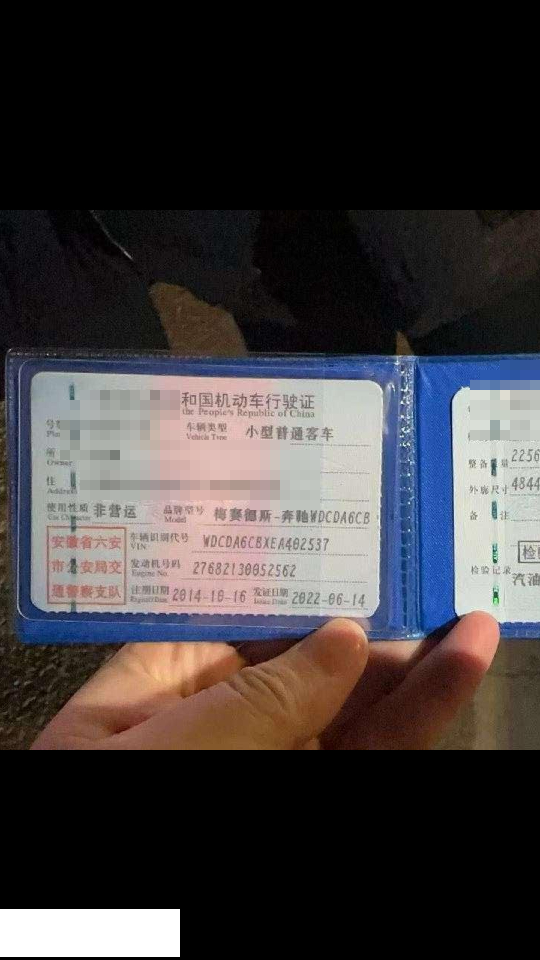 和国机动车行驶证
the People's Republic of China
车辆类型 小型普通客车
Vehicle Type
所
Owner
住
Address
使用性质 非营运 品牌型号 梅赛德斯-奔驰WDCDA6CB
Use Character Model
安徽省六安
市公安局交
通警察支队
车辆识别代号 WDCDA6CBXEA402537
VIN
发动机号码 27682130052562
Engine No.
注册日期 2014-10-16 发证日期 2022-06-14
Register Date Issue Date
整备质量 2256
外廓尺寸 4844
备 注
检验记录
汽油